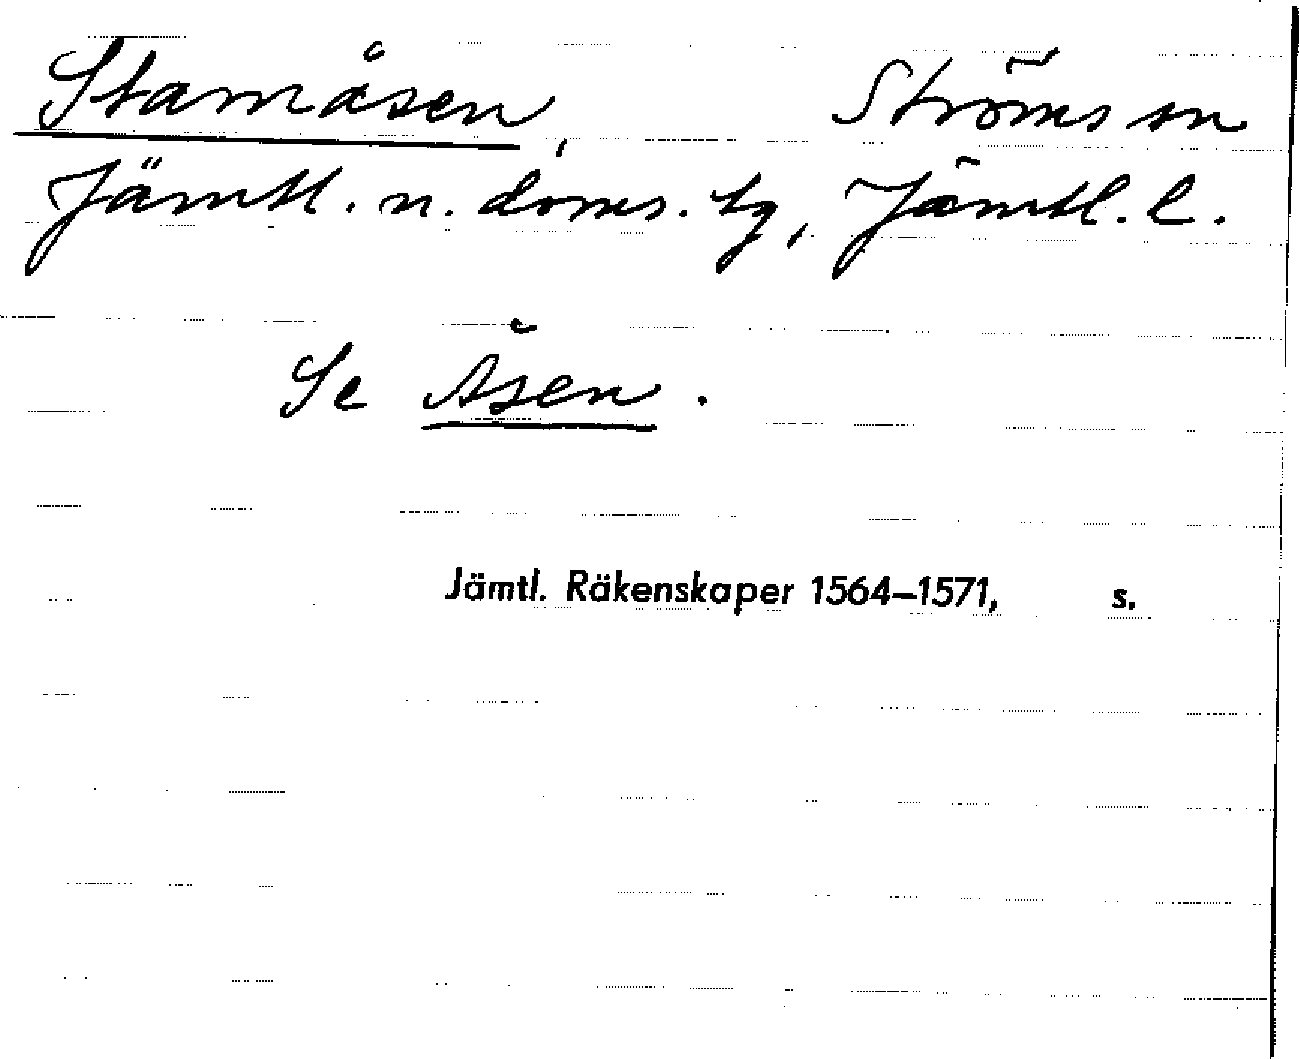 Stamåsen, Ströms sn
Jämtl. n. doms. tg, Jämtl. l.
Se Åsen.
Jämtl. Räkenskaper 1564–1571, s.